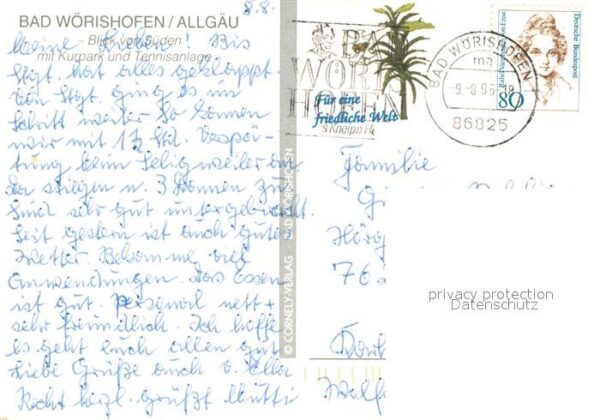 8.8.
BAD WÖRISHOFEN / ALLGÄU
- Blick von Süden
mit Kurpark und Tennisanlage -
Meine Lieben! Bis
Stgt. hat alles geklappt.
Von Stgt. ging es im
Schritt weiter. So kamen
wir mit 1½ Std. Verspä-
tung beim
stiegen n. 3 zu
Sind sehr gut untergebracht.
Seit gestern ist auch gutes
Wetter. Bekomme viel
Anwendungen. Das Essen
ist gut. Personal nett +
sehr freundlich. Ich hoffe
es geht euch allen gut
Liebe Grüße auch v.
Recht herzl. grüßt Mutti
© CORNELY-VERLAG · BAD WÖRISHOFEN
BAD
WÖRIS
HOFEN
Für eine
friedliche Welt
s Kneipp H
BAD WÖRISHOFEN
ma
86825
Deutsche Bundespost
Rahel Varnhagen von Ense
80
Familie
76
privacy protection
Datenschutz